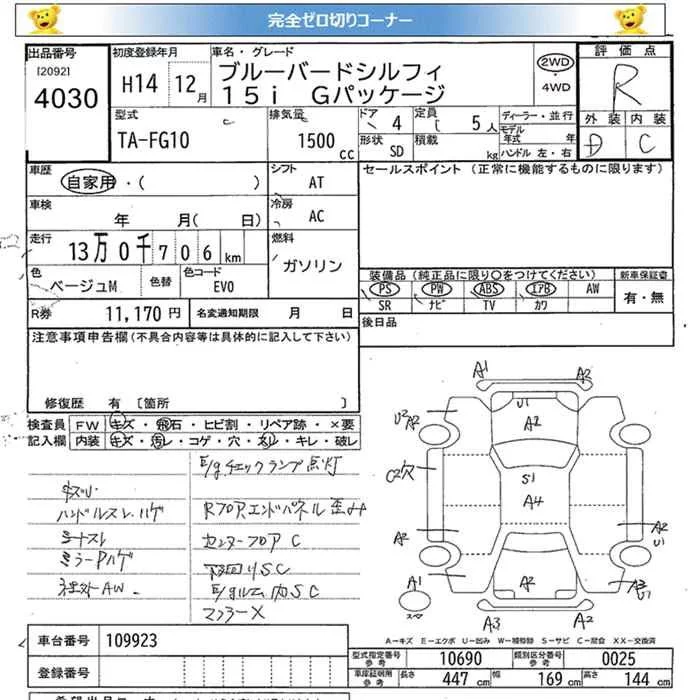 完全ゼロ切りコーナー
出品番号 初度登録年月 車名・グレード 評価点
[2092] 4030 H14 12月 ブルーバードシルフィ 2WD ・ 4WD R
15i Gパッケージ
型式 排気量 ドア 定員 ディーラー・並行 外装 内装
TA-FG10 1500 cc 4 5人 モデル年式 年 D C
形状 SD 積載 kg ハンドル 左・右
車歴 シフト セールスポイント (正常に機能するものに限ります)
自家用・( ) AT
車検 冷房
年 月( 日) AC
走行 燃料
13万0千706km ガソリン
色 色替 色コード 装備品 (純正品に限り〇をつけてください) 新車保証書
ベージュM EV0 PS PW ABS エアB AW 有・無
SR ナビ TV カワ
R券 11,170円 名変通知期限 月 日 後日品
注意事項申告欄 (不具合内容等は具体的に記入して下さい)
修復歴 有 〔箇所
検査員 FW キズ・飛石・ヒビ割・リペア跡・×要
記入欄 内装 キズ・汚レ・コゲ・穴・スレ・キレ・破レ
E/gチェックランプ点灯
キズ小
ハンドルスレ、ハゲ Rフロアエンドパネル歪み
シートスレ センターフロアC
ミラーPハゲ 下回りSC
社外AW. E/gルーム内SC
マフラーX
A1 A2
U2 A2 U1 A2
C2穴 S1
A4
A2 A2 U1
A1 A2
A3 A2
A-キズ E-エクボ U-凹み W-補修跡 S-サビ C-腐食 XX-交換済
車台番号 109923
登録番号
型式指定番号 参考 10690 類別区分番号 参考 0025
車庫証明用 参考 長さ 447 cm 幅 169 cm 高さ 144 cm